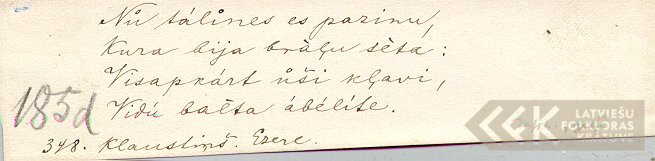 Nů tálines es pazinu,
Kura bija brāļu sēta:
Visapkárt ůši kļavi,
Vidú balta ábélite.
185d
348. Klaustiņš. Ezere.
LATVIEŠU
FOLKLORAS